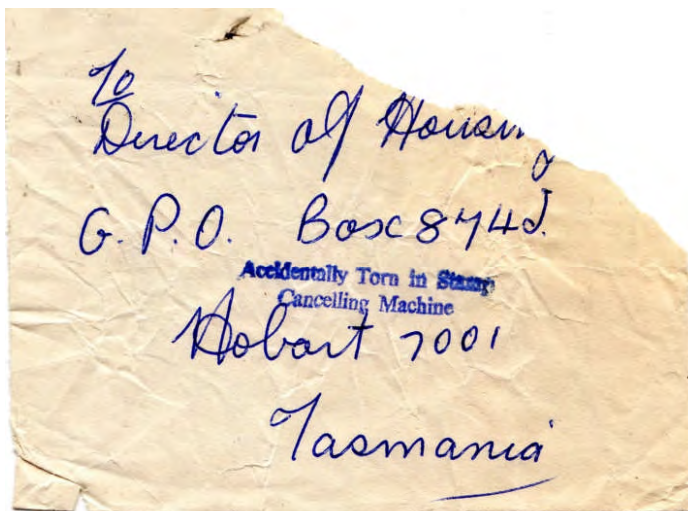 To
Director of Housing
G.P.O. Box 874J.
Accidentally Torn in Stamp
Cancelling Machine
Hobart 7001
Tasmania